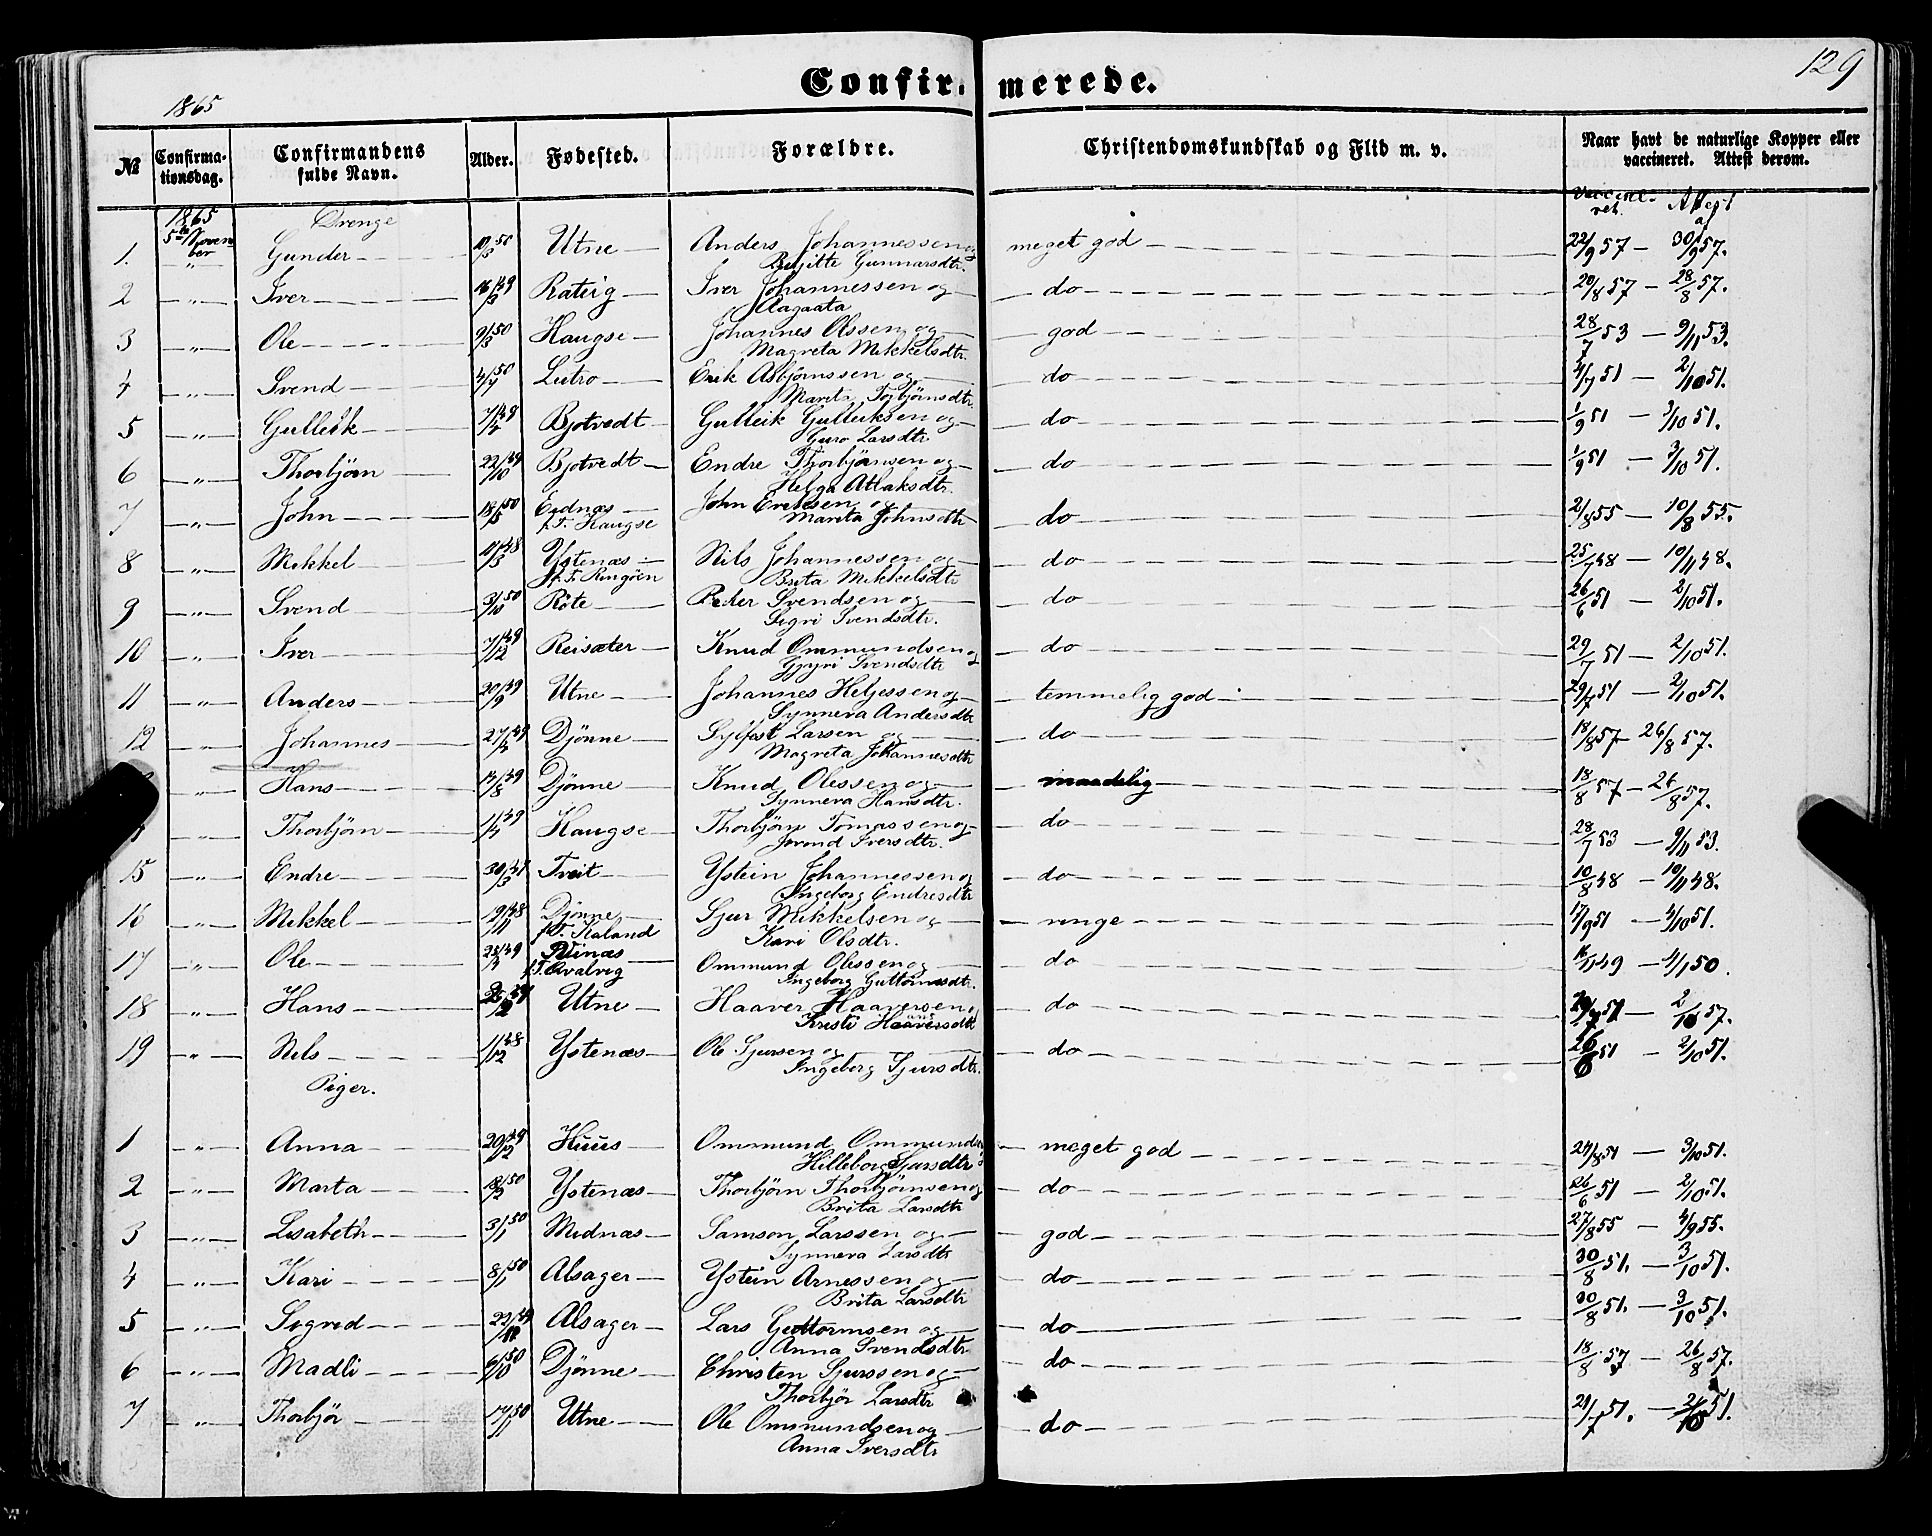 129
Confirmerede.
1865
№ Confirmationsdag. Confirmandens fulde Navn. Alder. Fødested. Forældre. Christendomskundskab og Flid m. v. Naar havt de naturlige Kopper eller vaccineret. Attest derom.
1865 Drenge Attest
5te Novem
ber
1. " Gunder 50 Utne Anders Johannessen og meget god 22/9 57 — 30/9 57.
Gunnarsdtr.
2 " Iver 49 Iver Johannessen og do 20/8 57 — 28/8 57.
Aagaata
3 " Ole 9/3 50 Haugse Johannes Olssen og god 28/7 53 — 9/11 53.
Magreta Mikkelsdtr.
4 " Svend 50 Lutro Erik Asbjørnssen og do 4/7 51 — 2/10 51.
Marita Torbjörnsdtr.
5 " Gulleik 49 Bjotvedt Gulleik Gulleiksen og do 1/9 51 — 3/10 51.
Guro Larsdtr
6 " Thorbjörn 22/10 49 Bjotvedt Endre Thorbjörnsen og do 1/9 51 — 3/10 51.
Helga Atlaksdtr.
7 " John 18/5 50 Eidnæs John Eriksen og do 2/8 55 — 10/8 55.
f. T. Haugse Marita Johnsdtr
8 " Mikkel 48 Ystenæs Nils Johannessen og do 25/7 48 — 10/11 48.
f. T. Ringöen Brita Mikkelsdtr
9 " Svend 3/10 50 Röte Peder Svendsen og do 26/6 51 — 2/10 51.
Sigri Svendsdtr.
10 " Iver 7/12 49 Reisæter Knud Ommundsen og do 29/7 51 — 2/10 51.
Svendsdtr
11 " Anders 20/9 49 Utne Johannes Heljessen og temmelig god 29/7 51 — 2/10 51.
Synneva Andersdtr
12 " Johannes 27/ 49 Djönne Sylfest Larsen og do 18/8 57 — 26/8 57.
Magreta Johannesdtr
" Hans /8 49 Djönne Knud Olessen og maadelig 18/8 57 — 26/8 57.
Synneva Hansdtr.
" Thorbjörn 49 Haugse Thorbjörn Tomassen og do 28/7 53 — 9/11 53.
Iversdtr.
15 " Endre 30/3 Tveit Ystein Johannessen og do 10/8 48 — 10/11 48.
Ingeborg Endresdtr
16 " Mikkel 19/11 48 Djönne Sjur Mikkelsen og ringe 17/9 51 — 4/10 51.
f. T. Kaland Kari Olsdtr.
17 " Ole 49 Ommund Olessen og do 16/11 49 — 4/1 50.
f. T. Qvalvig Ingeborg Guttormsdtr.
18 " Hans Utne Haaver Haaversen og do 2/10 57.
Kristi
19 " Nils 11/12 48 Ystenæs Ole Sjursen og do 26/6 51 — 2/10 51.
Ingeborg Sjursdtr.
Piger.
1 " Anna 20/12 49 Huus Ommund Ommunds meget god 3/10 51.
Hilleborg Sjursdtr
2 " Marta 18/2 50 Ystenæs Thorbjörn Thorbjörnsen og do 26/6 51 — 2/10 51.
Brita Larsdtr
3 " Lisabeth 3/1 50 Midnæs Samson Larssen og god 27/8 55 — 4/9 55.
Synneva Larsdtr
4 " Kari 8/1 50 Alsager Ystein Arnessen og do 30/8 51. — 3/10 51.
Brita Larsdtr
5 " Sigrid Alsager Lars Guttormsen og do 30/8 51. — 3/10 51.
Anna Svendsdtr
6 " Madli 6/10 50 Djönne Christen Sjurssen og do 18/8 57 — 26/8 57.
Thorbjör Larsdtr
7 " Thorbjör 50 Utne Ole Ommundsen og do 51. — 2/10 51.
Anna Iversdtr